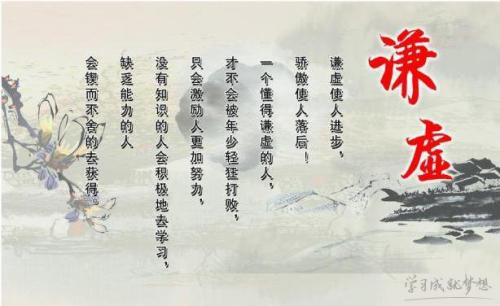 谦虚
谦虚使人进步，
骄傲使人落后！
一个懂得谦虚的人，
才不会被年少轻狂打败，
只会激励人更加努力，
没有知识的人会积极地去学习，
缺乏能力的人
会锲而不舍的去获得。
学习成就梦想